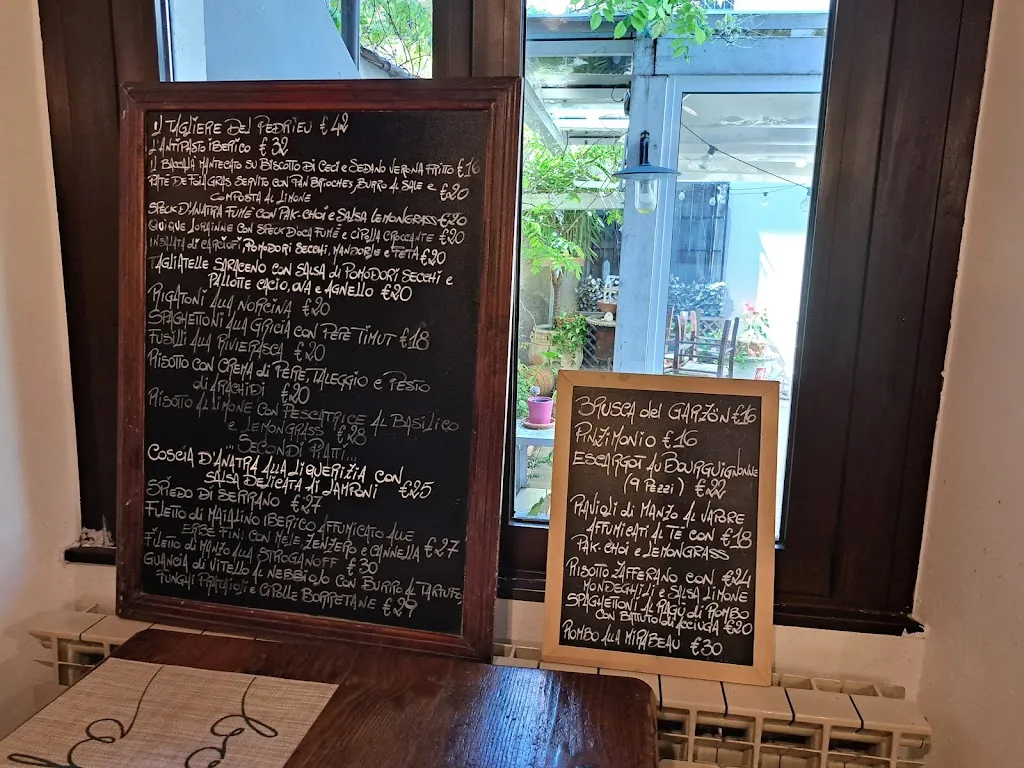 1) TAGLIERE DEL PEDRIEU €42
L'ANTIPASTO IBERICO €32
1) BACCALÀ MANTECATO SU BISCOTTO DI CECI E SEDANO VERONA FRITTO €16
PATÉ DE FOIA GRAS SERVITO CON PAN BRIOCHES, BURRO AL SALE e €20
COMPOSTA AL LIMONE
SPECK D'ANATRA FUMÉ CON PAK-CHOI e SALSA LEMONGRASS €20
QUIQUE LORAINNE CON SPECK D'OCA FUMÉ e CIPOLLA CROCCANTE €20
INSALATA di CARCIOFI, POMODORI SECCHI, MANDORLE e FETA €20
TAGLIATELLE SARACENO CON SALSA di POMODORI SECCHI e
PALLOTTE CACIO, OVA e AGNELLO €20
RIGATONI ALLA NORCINA €20
SPAGHETTONI ALLA GRICIA CON PEPE TIMUT €18
FUSILLI ALLA RIVIERASCA €20
RISOTTO CON CREMA di PEPE, TALEGGIO e PESTO
di ARACHIDI €20
RISOTTO AL LIMONE CON PESCATRICE AL BASILICO
e LEMONGRASS €28
...SECONDI PIATTI...
COSCIA D'ANATRA ALLA LIQUERIZIA CON
SALSA DELICATA AI LAMPONI €25
SPIEDO DI SERRANO €27
FILETTO di MAIALINO IBERICO AFFUMICATO ALLE
ERBE FINI CON MELE, ZENZERO e CANNELLA €27
FILETTO di MANZO ALLA STROGANOFF €30
GUANCIA di VITELLO AL NEBBIOLO CON BURRO AL TARTUFO,
FUNGHI PRATAIOLI e CIPOLLE BORRETANE €29
BRUSCA del GARZON €16
PINZIMONIO €16
ESCARGOT AU BOURGUIGNONNE
(9 PEZZI) €22
RAVIOLI di MANZO AL VAPORE
AFFUMICATI AL TÈ CON €18
PAK-CHOI e LEMONGRASS
RISOTTO ZAFFERANO CON €24
MONDEGHILI e SALSA LIMONE
SPAGHETTONI AL RAGÙ di ROMBO
CON BATTUTO di ACCIUGA €20
ROMBO ALLA MIRABEAU €30